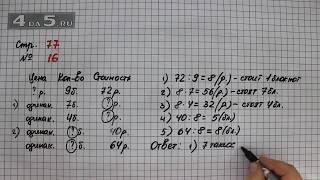 4DA5.RU
Стр. 77
№ 16
Цена Кол-во Стоимость
? р. 9б. 72 р.
1) одинак. 7б. ?
одинак. 4б. ?
2) одинак. ? б. 40р.
одинак. ? б. 64р.
1) 72 : 9 = 8 (р.) - стоит 1 блокнот
2) 8 · 7 = 56 (р.) - стоят 7 бл.
3) 8 · 4 = 32 (р.) - стоят 4 бл.
4) 40 : 8 = 5 (бл.)
5) 64 : 8 = 8 (бл.)
Ответ: 1) 7